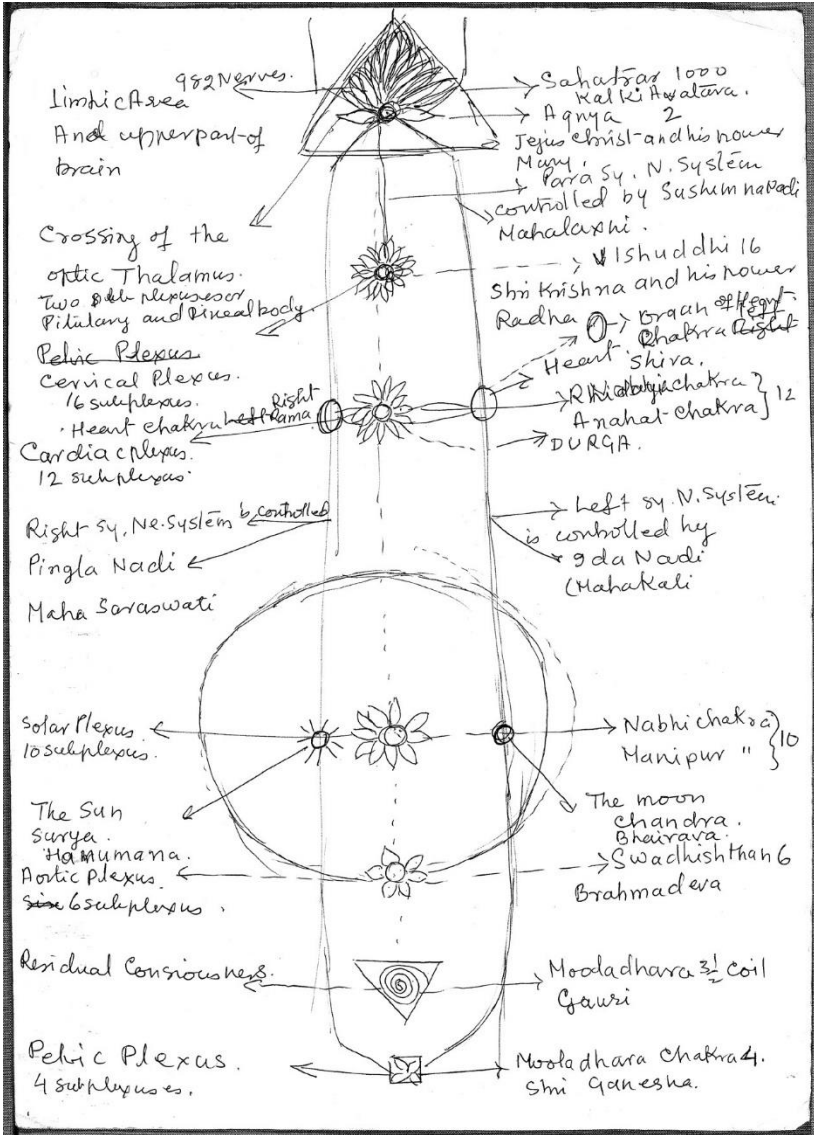 982 Nerves.
Limbic Area
And upper part of
brain
Crossing of the
optic Thalamus.
Two sub plexuses or
Pitutary and Pineal body.
Pelvic Plexus
Cervical Plexus.
16 subplexus.
Heart chakra Left Right
Rama
Cardiac plexus.
12 subplexus.
Right sy. Ne. System is controlled
Pingla Nadi
Maha Saraswati
Solar Plexus
10 subplexus.
The Sun
Surya.
Hanumana.
Aortic Plexus
Six 6 subplexus.
Residual Consiousness.
Pelvic Plexus.
4 subplexuses.
Sahatrar 1000
Kalki Avatara.
Agnya 2
Jejus Christ and his power
Mary.
Para Sy. N. System
controlled by Sushumna Nadi
Mahalaxmi.
Vishuddhi 16
Shri Krishna and his power
Radha
Organ of Heart.
Heart Chakra Left Right
Shiva.
Rhidaya chakra
Anahat-chakra } 12
DURGA.
Left sy. N. System.
is controlled by
Ida Nadi
(Mahakali
Nabhi chakra
Manipur " } 10
The moon
chandra.
Bhairava.
Swadhishthan 6
Brahmadeva
Mooladhara 3½ coil
Gauri
Mooladhara Chakra 4.
Shri Ganesha.